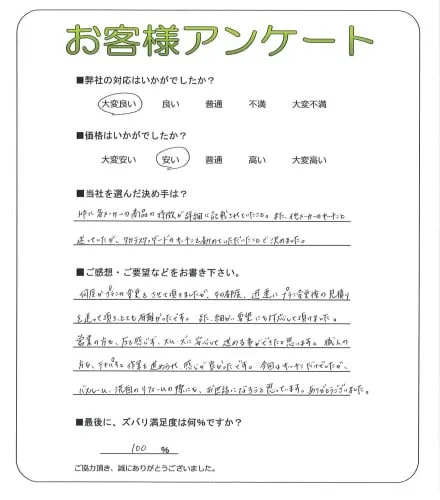 お客様アンケート
■弊社の対応はいかがでしたか?
大変良い 良い 普通 不満 大変不満
■価格はいかがでしたか?
大変安い 安い 普通 高い 大変高い
■当社を選んだ決め手は?
HPに各メーカーの商品の特徴が詳細に記載されていたこと。また、他メーカーのキッチンと
迷っていたが、タカラスタンダードのキッチンを勧めていただいたことで決めました。
■ご感想・ご要望などをお書き下さい。
何度かプランの変更をさせて頂きましたが、その都度、迅速にプラン変更後の見積り
を送って頂き、とても有難かったです。また、細かい要望にも対応して頂けました。
営業の方も、圧を感じず、スムーズに安心して進める事ができたと思います。職人の
方も、テキパキと作業を進められ、感じが良かったです。今回はキッチンだけでしたが、
バスルーム、洗面のリフォームの際にも、お世話になろうと思っています。ありがとうございました。
■最後に、ズバリ満足度は何%ですか?
100 %
ご協力頂き、誠にありがとうございました。